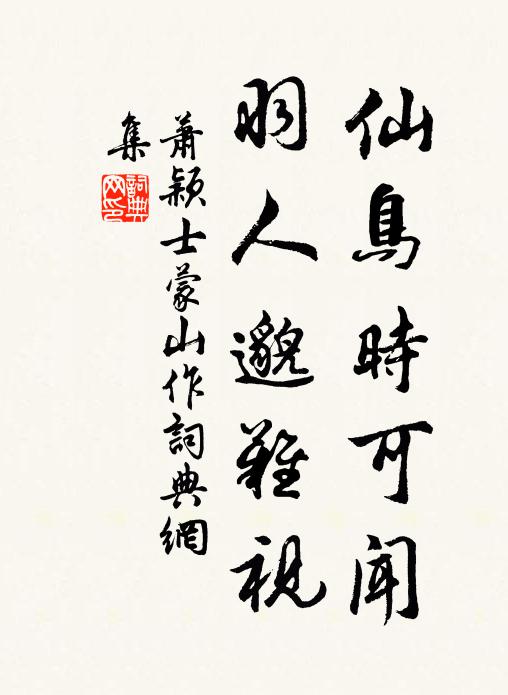 仙鳥時可聞
羽人邈難視
蕭穎士蒙山作詞典網
集
詞典
网印